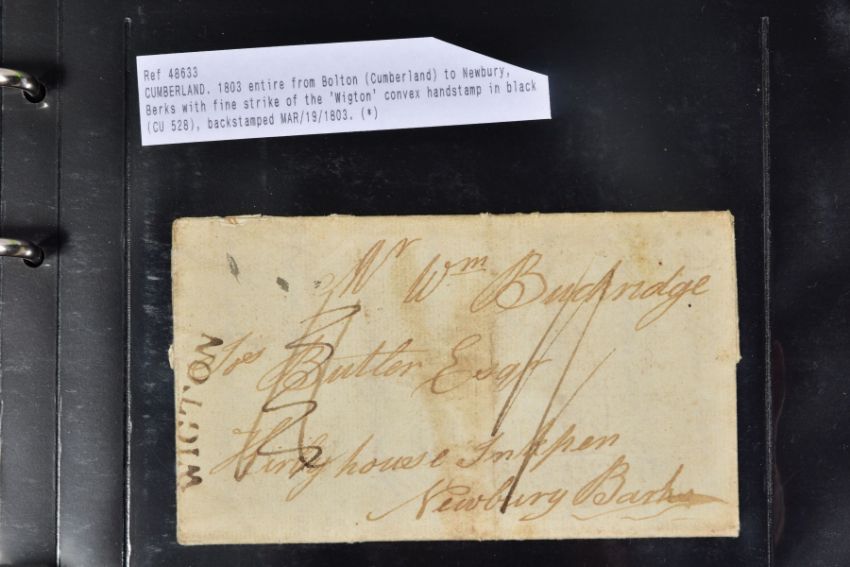 Ref 48633
CUMBERLAND. 1803 entire from Bolton (Cumberland) to Newbury,
Berks with fine strike of the 'Wigton' convex handstamp in black
(CU 528), backstamped MAR/19/1803. (*)
Mr Wm Buckridge
Jos Butler Esqr
house Inkpen
Newbury Barks
WIGTON